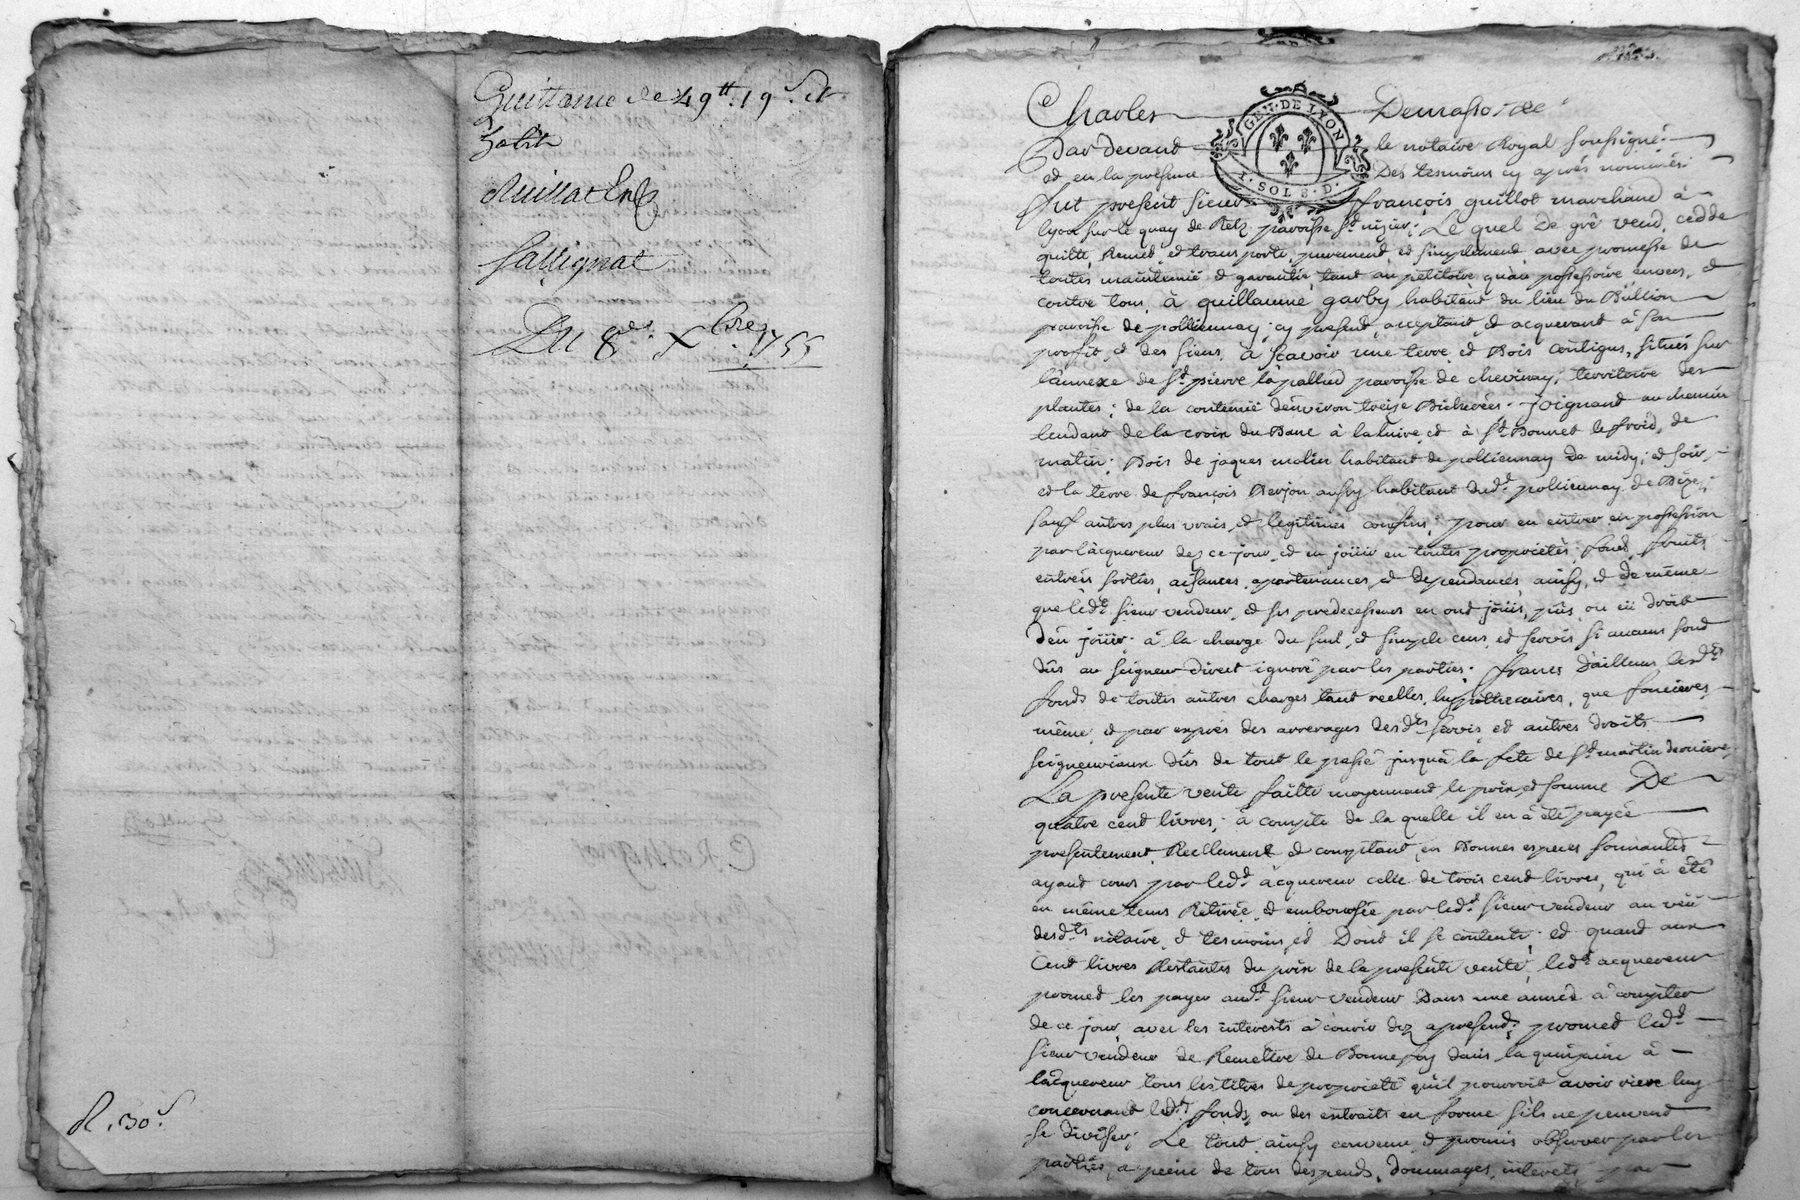 Quittance de 49tt. 19s. et
Sallignat
Du 8e. Xbre. 1755
R. 30s.
Charles Demasso ice
GEN. DE LYON
I. SOL 8. D.
Par devant le notaire Royal soussigné
et en la presence Des tesmoins cy aprés nommés
fut present sieur françois guillot marchand à
lyon sur le quay de Retz paroisse St. nizier; Le quel De gré vend, cedde
quitte, Remet, et transporte, purement, et simplement, avec promesse de
toutes maintenüe et garantie, tant au petitoire, qu'au possessoire envers, et
contre tous, à guillaume garby habitant du lieu du Bullion
paroisse de pollionnay; cy present, acceptant, et acquerant à son
profit, et des siens, à sçavoir une terre, et Bois contigus, situés sur
l'annexe de St. pierre la pallud paroisse de chevinay; territoire des
plantes; de la contenüe d'environ treize Bicherées. joignant au chemin
tendant de la croix du Banc à la et à St. Bonnet le froid, de
matin; Bois de jaques molin habitant de pollionnay de midy; et soir,
et la terre de françois Berjon aussy habitant dudt. pollionnay de Bize;
sauf autres plus vrais, et legitimes confins; pour en entrer en possession
par l'acquereur dez ce jour, et en joüir en toutes proprietés, fond, fruits
entrées sorties, aisances, apartenances, et dependances, ainsy, et de même
que ledt. sieur vendeur, et ses predecesseurs en ont joüis, pûs, ou eü droit
d'en joüir; à la charge du seul, et simple cens, et servis si aucuns sont
dûs au seigneur direct ignoré par les parties; francs d'ailleurs lesdts.
fonds de toutes autres charges tant reelles, hypothecaires, que foncieres,
même, et par exprés des arrerages desdts. servis, et autres droits
seigneuriaux dûs de tout le passé jusqu'à la fete de St. martin derniere,
La presente vente faitte moyennant le prix, et somme De
quatre cent livres; à compte de la quelle il en à été payée
presentement, Reellement, et comptant, en Bonnes especes sonnantes
ayant cours par ledt. acquereur celle de trois cent livres, qui à été
en même tems Retirée, et emboursée par ledt. sieur vendeur au veü
desdts. notaire, et tesmoins, et Dont il se contente; et quant aux
Cent livres Restantes du prix de la presente vente, ledt. acquereur
promet les payer audt. sieur vendeur Dans une année à compter
de ce jour, avec les interests à courir dez apresent; promet ledt.
sieur vendeur de Remettre de Bonne foy dans la quinzaine à
l'acquereur tous les titres de proprieté qu'il pourroit avoir riere luy
concernant lesdts. fonds, ou des extraits en forme s'ils ne peuvent
se diviser; Le tout ainsy convenu, et promis observer par les
parties, a peine de tous despends, dommages, interets, par